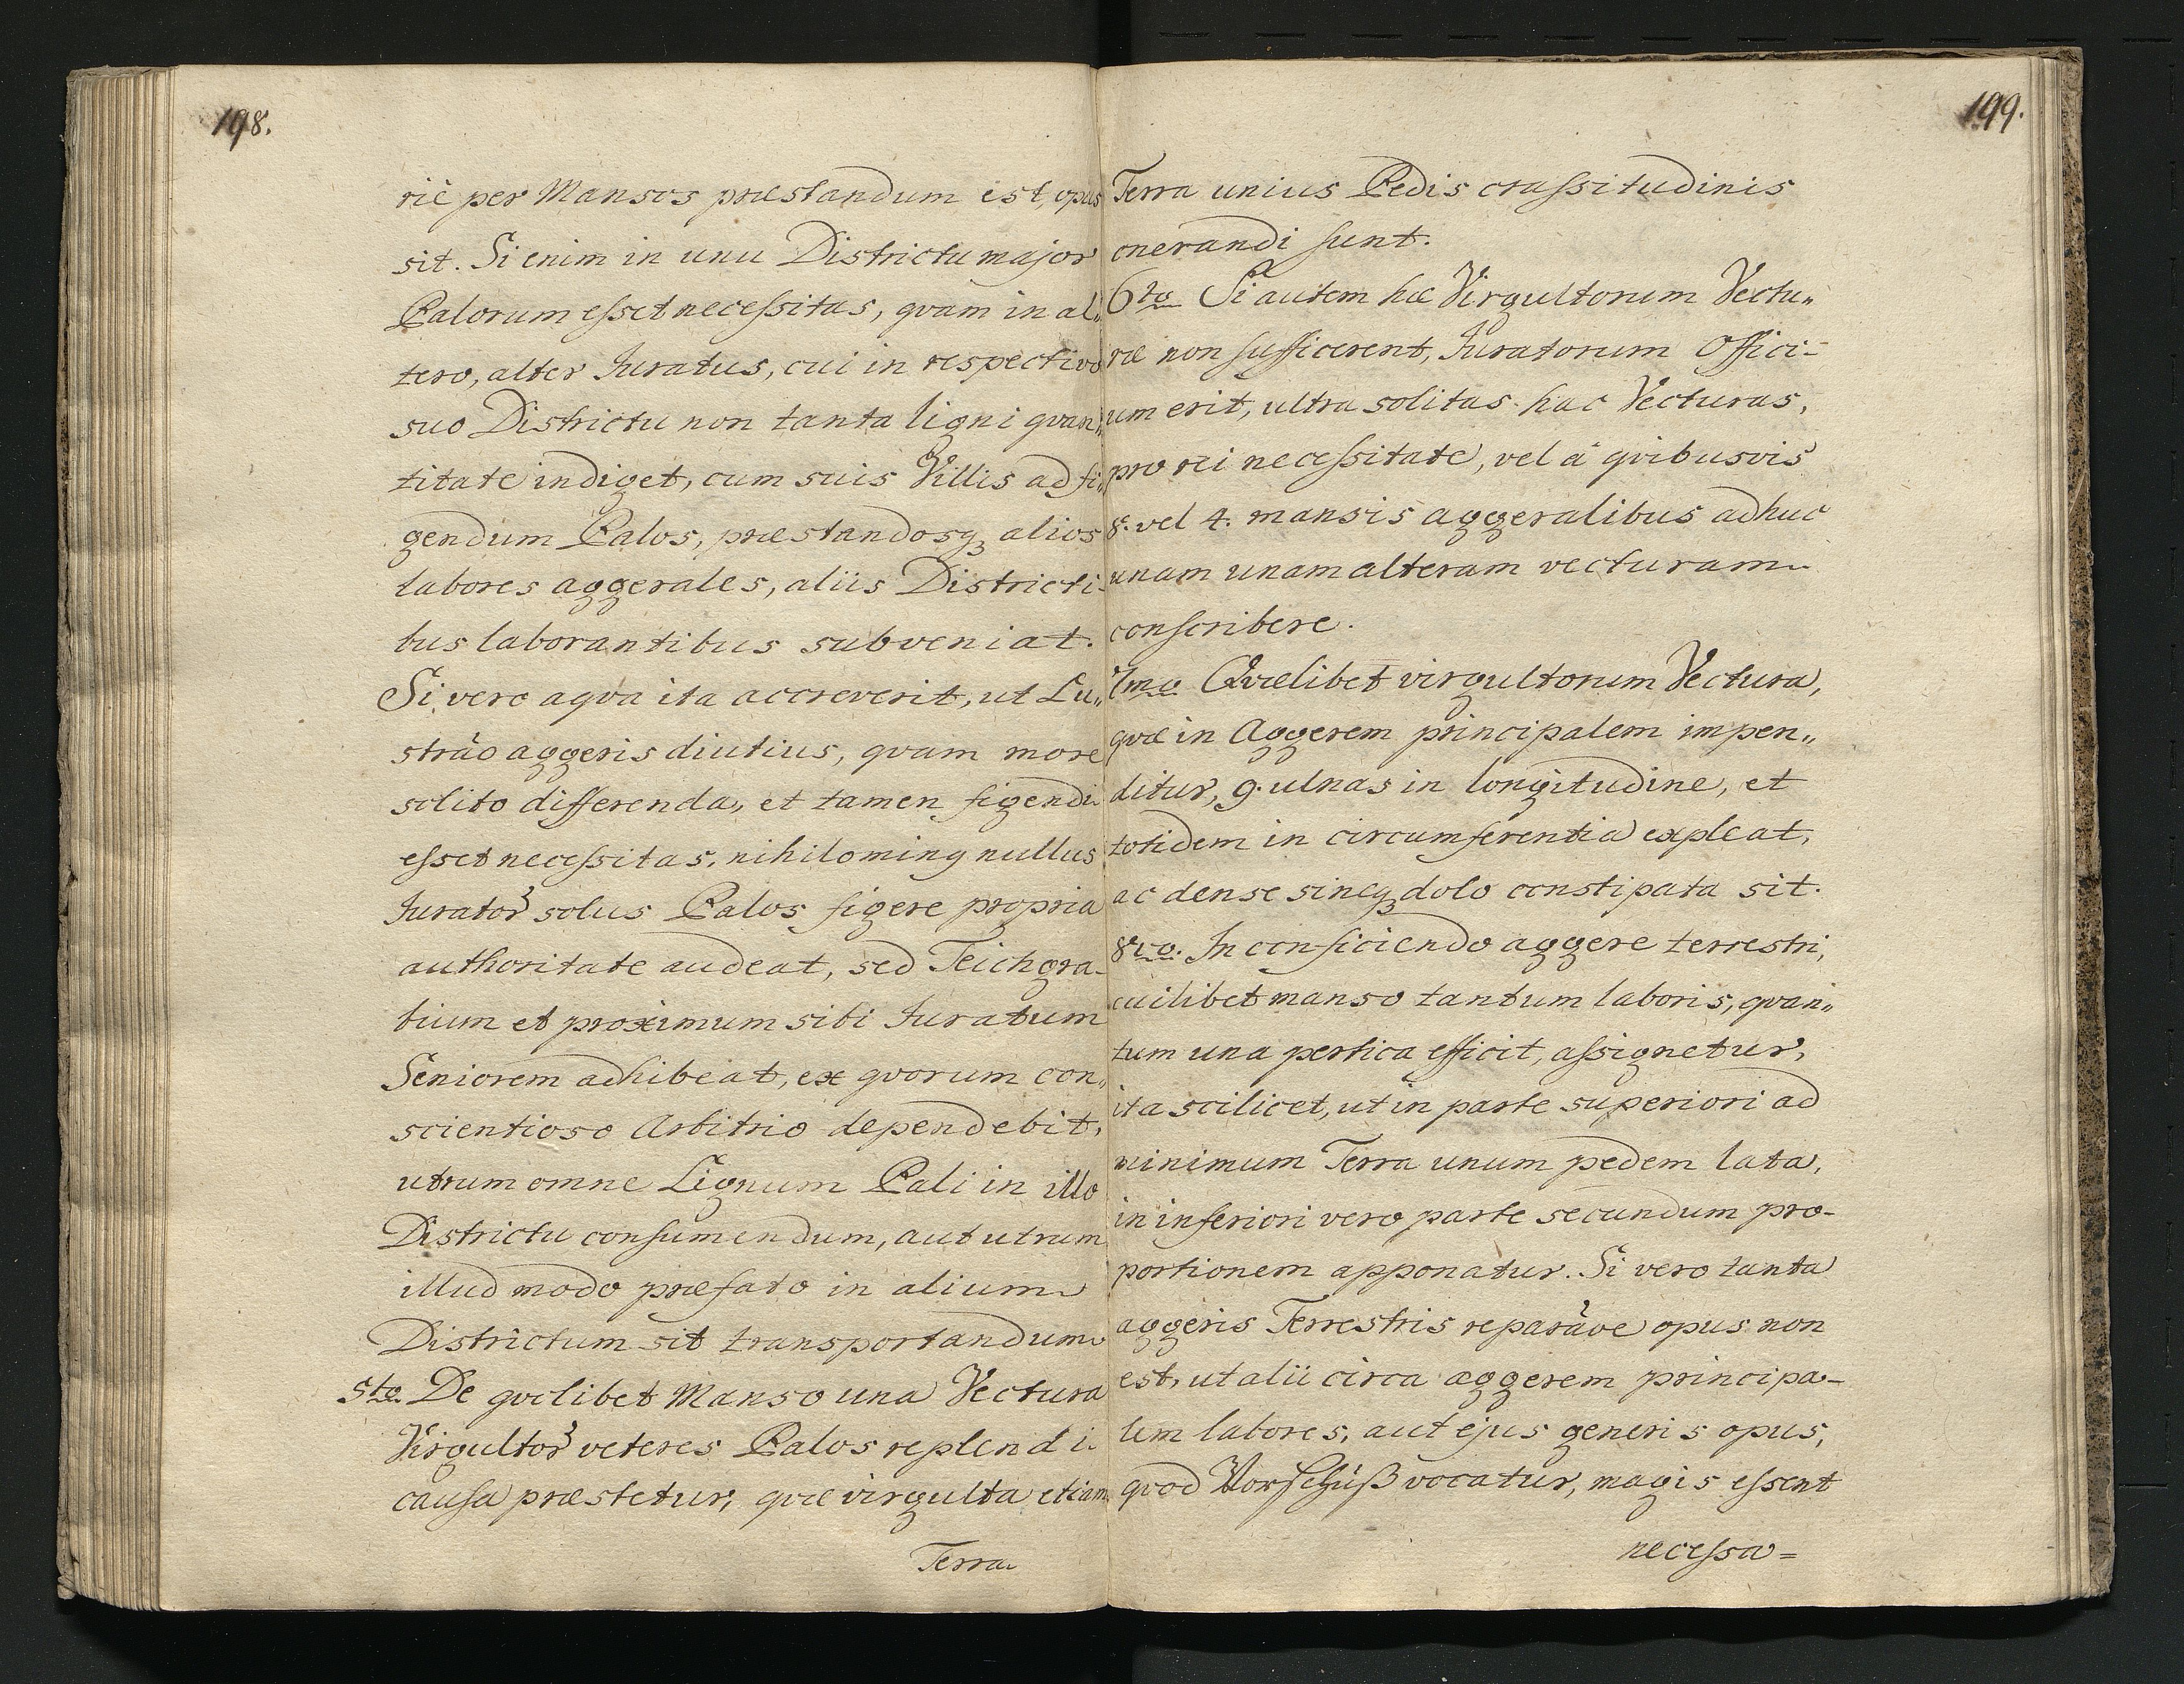 198.
riè per Mansos præstandum est, opus
sit. Si enim in unu Districtu major
Palorum esset necessitas, qvam in al„
tero, alter Juratus, cui in respectivo
suo Districtu non tanta ligni qvan„
titate indiget, cum suis Villis ad fi„
gendum Palos, præstandosqꝫ alios
labores aggerales, aliis Districti-
bus laborantibus subveniat.
Si vero aqva ita accreverit, ut Lu„
strāo aggeris diutius, qvam more
solito differenda, et tamen figendi
esset necessitas, nihilominꝗ nullus
Jurator̃ solus Palos figere propria
authoritate audeat, sed Teichgra-
bium et proximum sibi Juratum
Seniorem adhibeat, ex qvorum con„
scientioso Arbitrio dependebit,
utrum omne Lignum Pali in illo
Districtu consumendum, aut utrum
illud modo præfato in alium
Districtum sit transportandum.
5to De qvolibet Manso una Vectura
Virgultor̃ veteres Palos replendi
causa præstetur, qvæ virgulta etiam
Terra
199.
Terra unius Pedis crassitudinis
onerandi sunt.
6to Si autem hæ Virgultorum Vectu„
ræ non sufficerent, Juratorum Offici-
um erit, ultra solitas hac Vecturas,
pro rei necessitate, vel â qvibusvis
8. vel 4. mansis aggeralibus adhuc
unam unam alteram vecturam
conscribere.
7mo Qvælibet virgultorum Vectura,
qvæ in Aggerem principalem impen„
ditur, 9. ulnas in longitudine, et
totidem in circumferentia expleat,
ac dense sineqꝫ dolo constipata sit.
8vo. In conficiendo aggere terrestri,
cuilibet manso tantum laboris, qvan„
tum una pertica efficit, assignetur,
ita scilicet, ut in parte superiori ad
minimum Terra unum pedem lata,
in inferiori vero parte secundum pro-
portionem apponatur. Si vero tanta
aggeris Terrestris reparāoe opus non
est, ut alii circa aggerem principa-
lem labores, aut ejus generis opus,
qvod Vorschuß vocatur, magis essent
necessa=